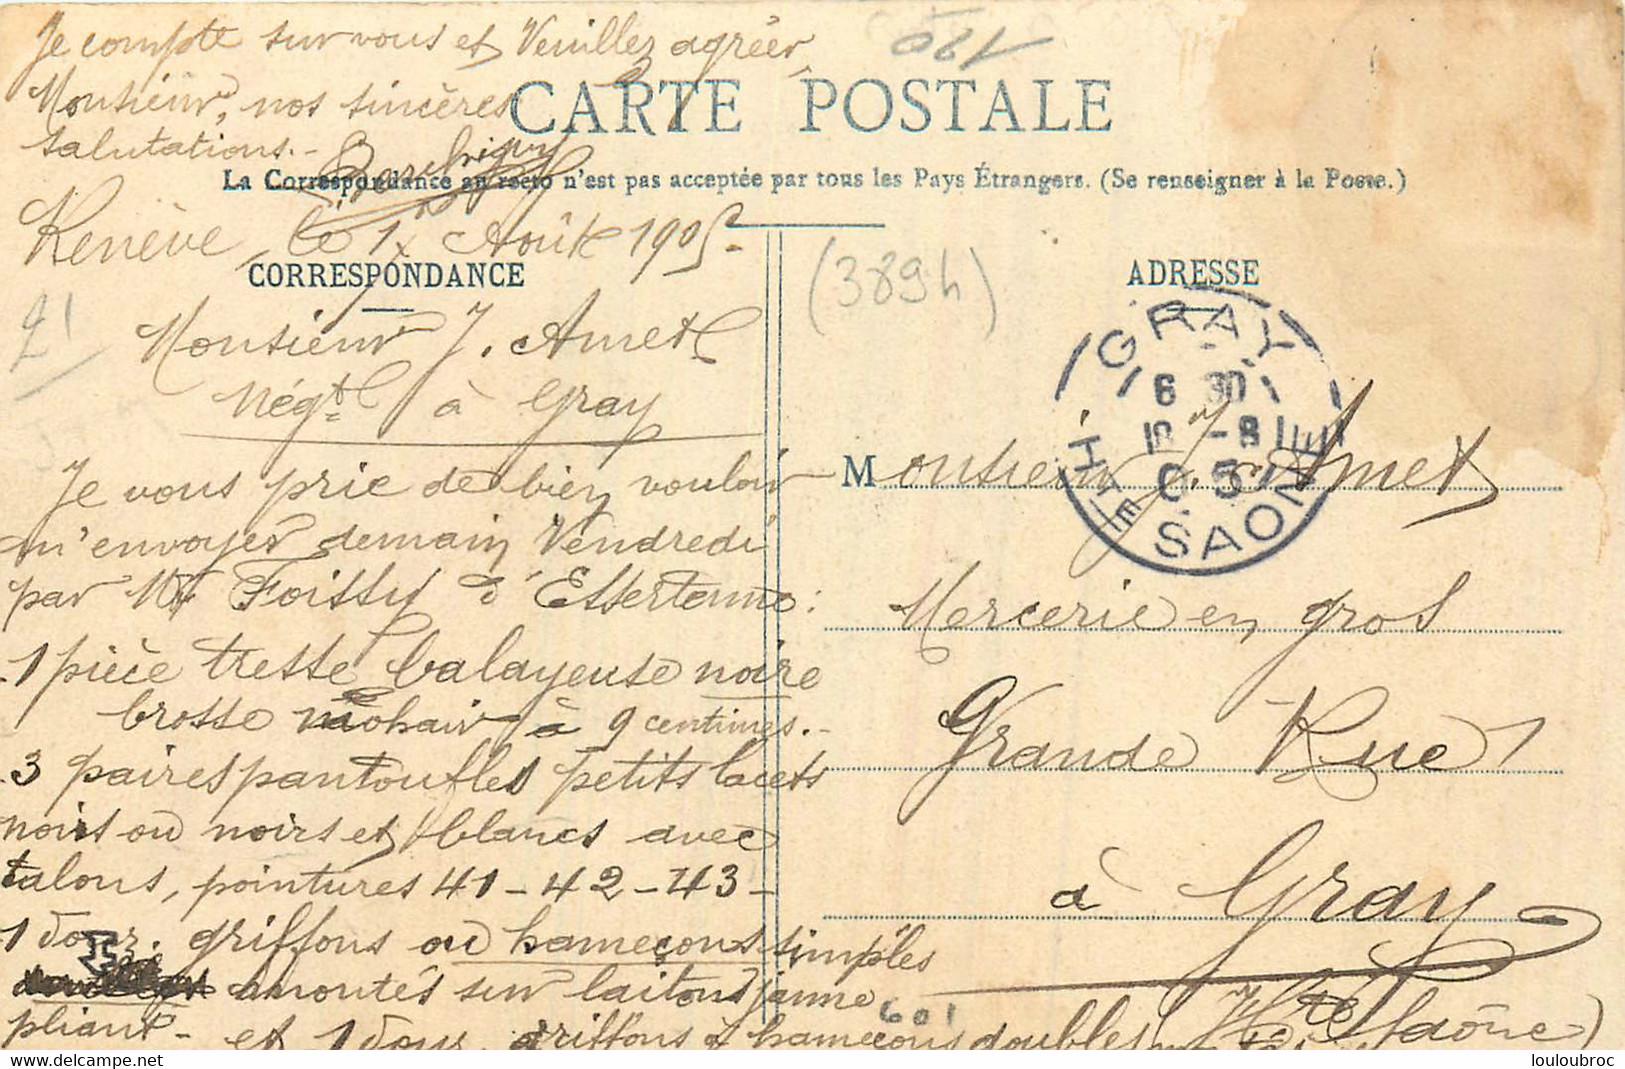 Je compte sur vous et Veuillez agréer,
Monsieur, nos sincères
salutations.-
CARTE POSTALE
La Correspondance au recto n'est pas acceptée par tous les Pays Étrangers. (Se renseigner à la Poste.)
Renève, le 1x Août 1905-
CORRESPONDANCE
Monsieur J. Amet
Négt à Gray
Je vous prie de bien vouloir
m'envoyer demain Vendredi
par Mr Foissy d'Essertenne:
1 pièce tresse balayeuse noire
brosse mohair à 9 centimes.-
3 paires pantoufles petits lacets
noirs ou noirs et blancs avec
talons, pointures 41-42-43-
1 douz. griffons ou hameçons simples
montés sur laiton jaune
pliant- et 1 douz. griffons à hameçons doubles
21
(3894)
ADRESSE
GRAY
6 30
10 -8
05
HTE SAONE
Monsieur J. Amet
Mercerie en gros
Grande Rue
à Gray
Hte Saône)
601
louloubroc